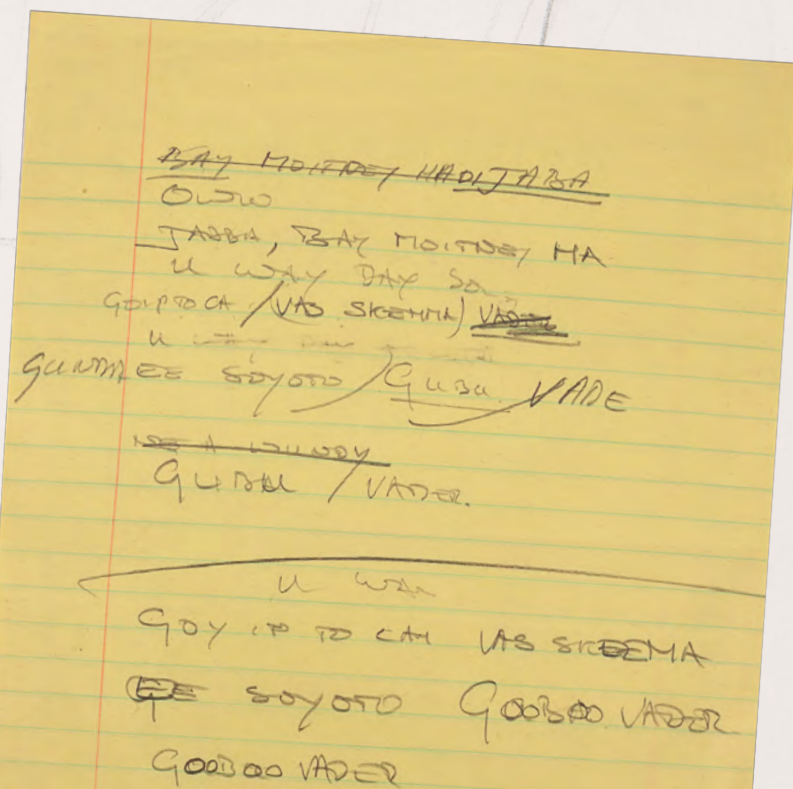 BAY MOITNEY HADIJABA
OWW
JABBA, BAY MOITNEY HA
U WAY BAY SO
GOIPTOCA /(VAS SKEEMA) VADER
U WAY
GUNDALEE SOYOTO /GUBU VADE
GUBU / VADER.
U WAN
GOY IP TO CAH VAS SKEEMA
EE SOYOTO GOOBOO VADER
GOOBOO VADER